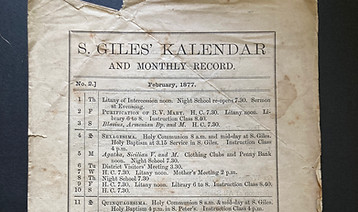 S. GILES' KALENDAR
AND MONTHLY RECORD.
No. 2.] February, 1877.
1 Th Litany of Intercession noon. Night School re-opens 7.30. Sermon
at Evensong.
2 F PURIFICATION OF B. V. MARY. H. C. 7.30. Litany noon. Li-
brary 6 to 8. Instruction Class 8.40.
3 S Blasius, Armenian Bp. and M. H. C. 7.30.
4 S SEXAGESIMA. Holy Communion 8 a.m. and mid-day at S. Giles.
Holy Baptism at 3.15 Service in S. Giles. Instruction Class
4 p.m.
5 M Agatha, Sicilian V. and M. Clothing Clubs and Penny Bank
noon. Night School 7.30.
6 Tu District Visitors' Meeting 3.30.
7 W H. C. 7.30. Litany noon. Mother's Meeting 2 p.m.
8 Th Night School 7.30
9 F H. C. 7.30. Litany noon. Library 6 to 8. Instruction Class 8.40.
10 S H. C. 7.30.
11 S QUINQUAGESIMA. Holy Communion 8 a.m. & mid-day at S. Giles.
Holy Baptism 4 p.m. in S. Peter's. Instruction Class 4